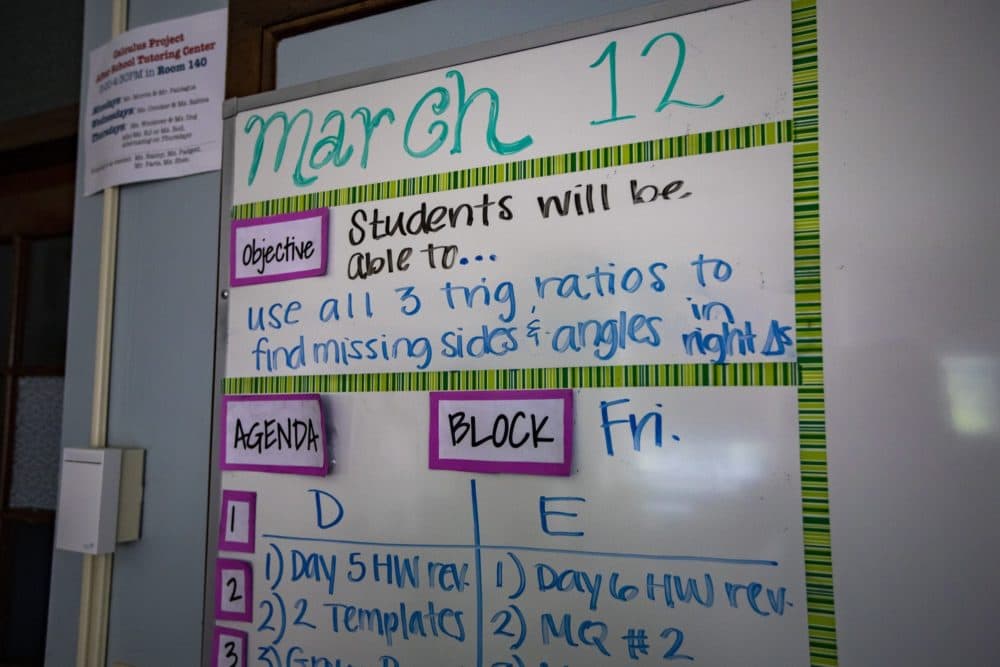 Calculus Project
After School Tutoring Center
in Room 140
Mondays:
Wednesdays:
Thursdays:
March 12
Objective
Students will be
able to...
use all 3 trig ratios to
find missing sides & angles in
right Δs
AGENDA
BLOCK
Fri.
1
D
E
2
1) Day 5 HW rev.
1) Day 6 HW rev.
2) 2 Templates
2) MQ #2
3
3)